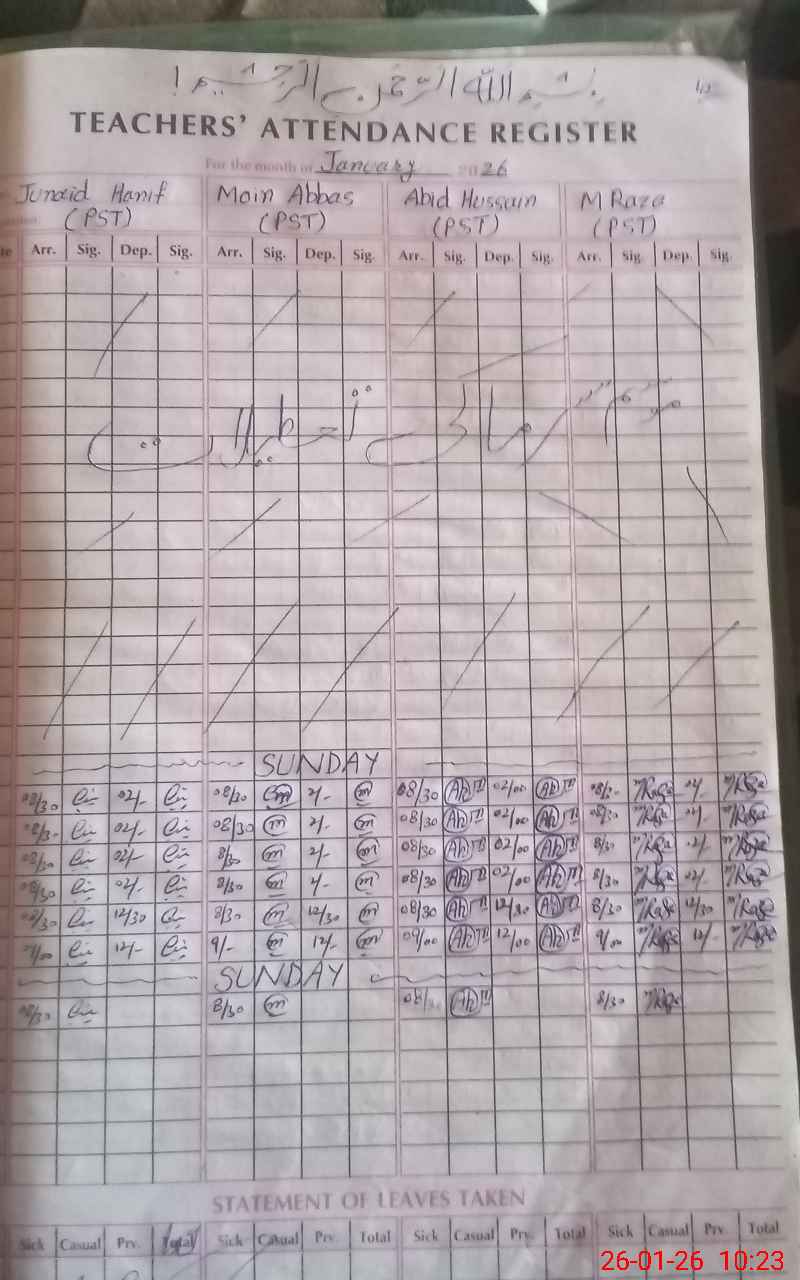 بسم اللہ الرحمن الرحیم !
TEACHERS' ATTENDANCE REGISTER
For the month of January 2026
Junaid Hanif Moin Abbas Abid Hussain M Raza
(PST) (PST) (PST) (PST)
Arr. Sig. Dep. Sig. Arr. Sig. Dep. Sig. Arr. Sig. Dep. Sig. Arr. Sig. Dep. Sig.
موسم سرمائی تعطیلات
SUNDAY
08/30 02/- 08/30 2/- 08/30 02/00 08/30 02/-
08/30 02/- 08/30 2/- 08/30 02/00 08/30 02/-
08/30 02/- 8/30 2/- 08/30 02/00 8/30 02/-
08/30 02/- 8/30 2/- 08/30 02/00 8/30 02/-
08/30 12/30 8/30 12/30 08/30 12/30 8/30 12/30
09/00 12/- 9/- 12/- 09/00 12/00 9/00 12/-
SUNDAY
08/30 8/30 08/30 8/30
STATEMENT OF LEAVES TAKEN
Sick Casual Prv. Total Sick Casual Prv. Total Sick Casual Prv. Total Sick Casual Prv. Total
26-01-26 10:23